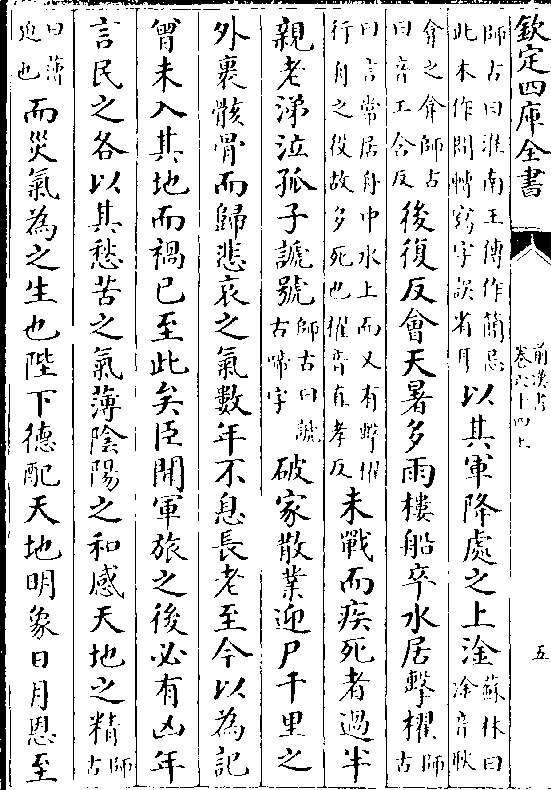 欽定四庫全書
前漢書
卷六十四上
五
師古曰淮南王傳作簡忌
此本作間轉寫字誤省耳
以其軍降處之上淦
蘇林曰
淦音耿
弇之弇師古
曰音工含反
後復反會天暑多雨樓船卒水居擊櫂
師古
曰言常居舟中水上而又有擊櫂
行舟之役故多死也櫂音直孝反
未戰而疾死者過半
親老涕泣孤子謕號
師古曰謕
古啼字
破家散業迎尸千里之
外裹骸骨而歸悲哀之氣數年不息長老至今以為記
曾未入其地而禍已至此矣臣聞軍旅之後必有凶年
言民之各以其愁苦之氣薄陰陽之和感天地之精
師古
曰薄
迫也
而災氣為之生也陛下德配天地明象日月恩至